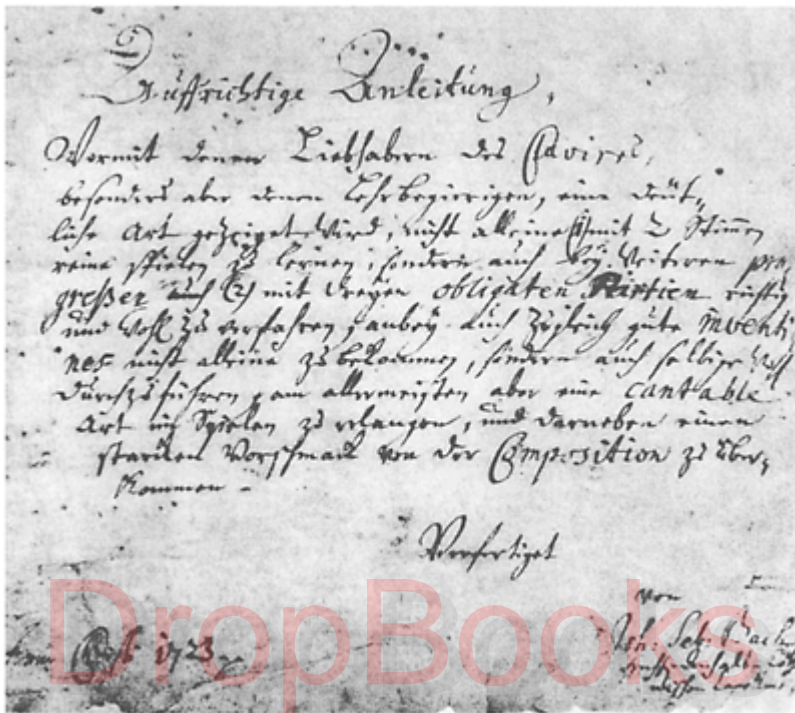 Auffrichtige Anleitung,
Wormit denen Liebhabern des Clavires,
besonders aber denen Lehrbegierigen, eine deüt-
liche Art gezeiget wird, nicht alleine (1) mit 2 Stimen
reine spielen zu lernen, sondern auch bey weiteren pro-
greßen auch (2) mit dreyen obligaten Partien richtig
und wohl zu verfahren, anbey auch zugleich gute inventi-
ones nicht alleine zu bekommen, sondern auch selbige wohl
durchzuführen, am allermeisten aber eine cantable
Art im Spielen zu erlangen, und darneben einen
starcken Vorschmack von der Composition zu über-
kommen.
Verfertiget
von
Joh: Seb: Bach
1723
DropBooks